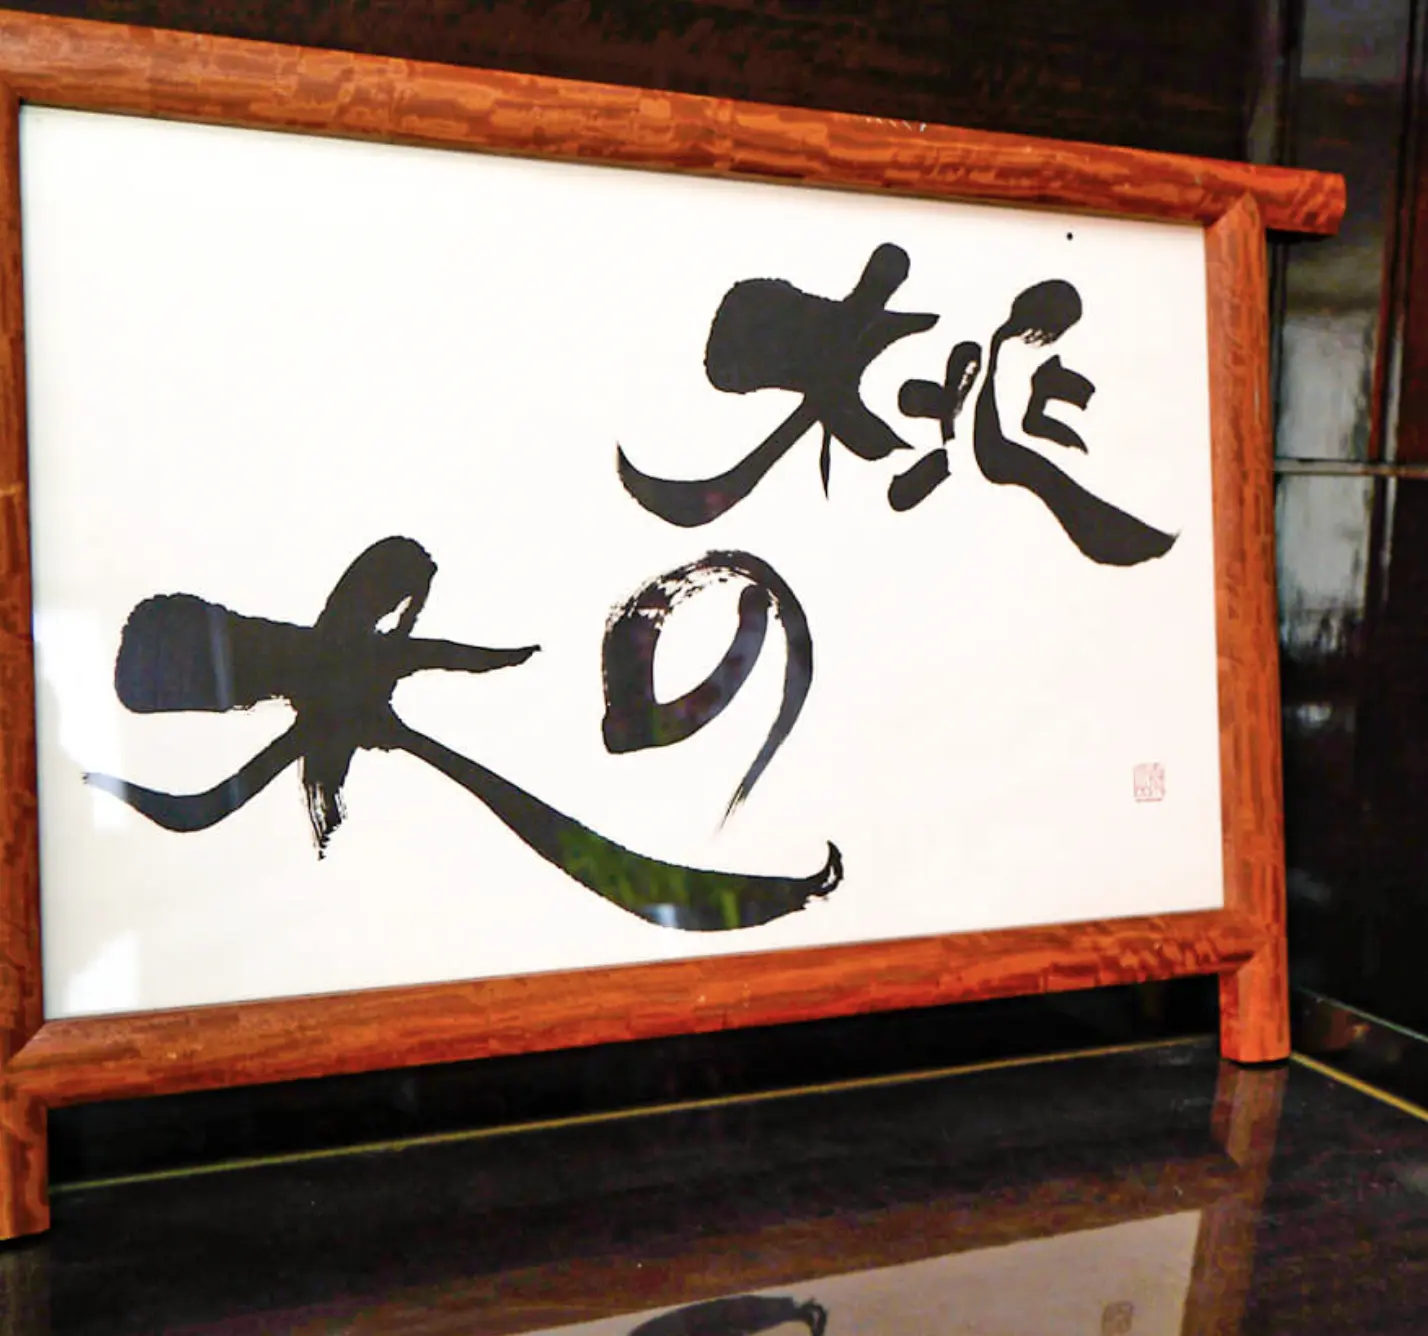 桃の木